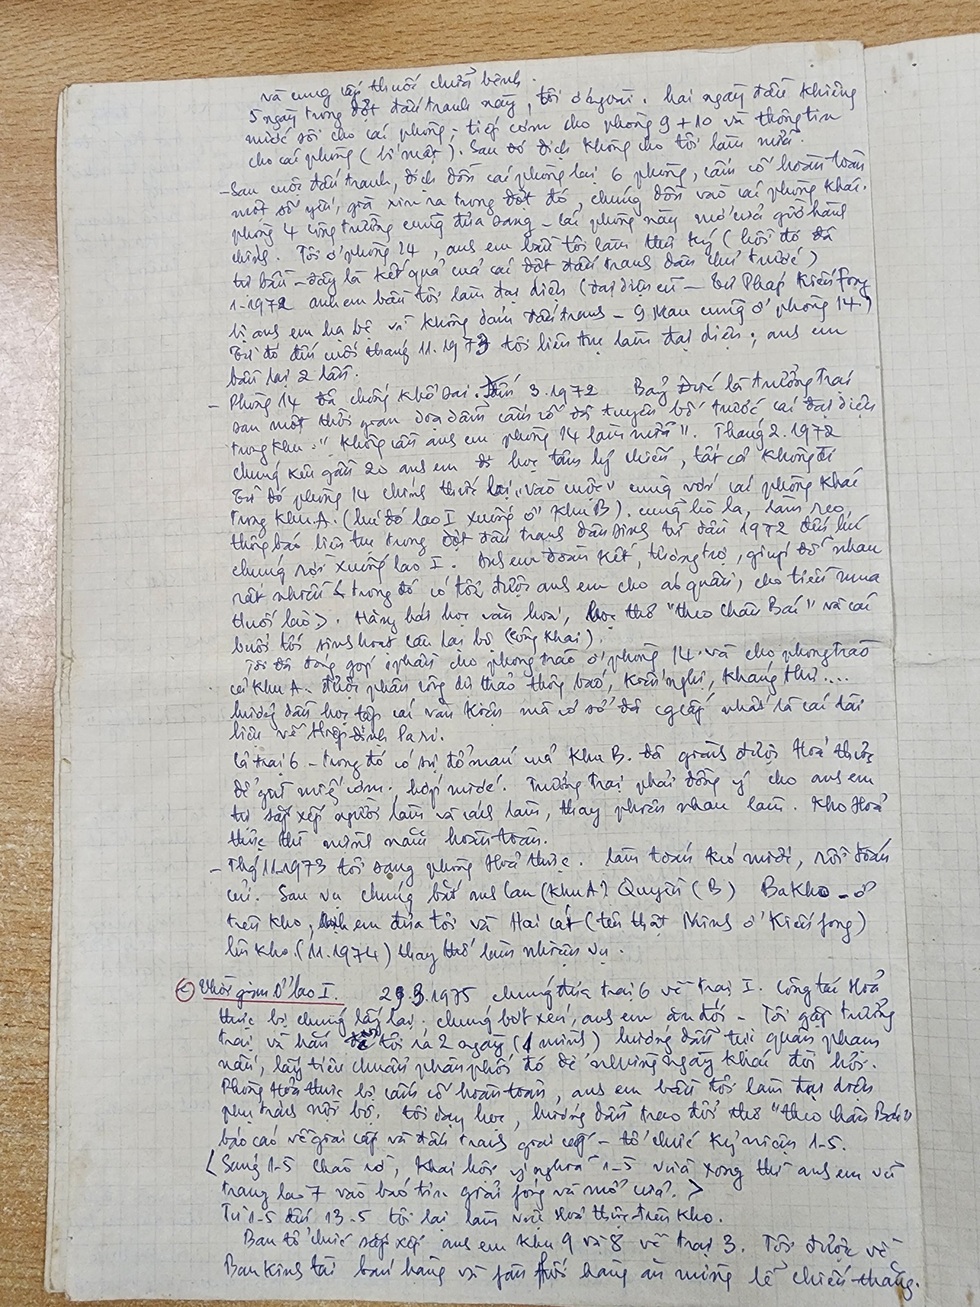 và cung cấp thuốc chữa bệnh.
5 ngày trong đợt đấu tranh này, tôi ở ngoài. hai ngày đầu khiêng
nước sôi cho các phòng; tiếp cơm cho phòng 9 + 10 và thông tin
cho các phòng (bí mật). Sau đó địch không cho tôi làm nữa.
- Sau cuộc đấu tranh, địch dồn các phòng lại 6 phòng, cấm cố hoàn toàn
một số yếu, già xin ra trong đợt đó, chúng dồn vào các phòng khác.
phòng 4 công trường cũng đưa sang - các phòng này mở cửa giờ hành
chính. Tôi ở phòng 14, anh em bầu tôi làm thư ký (hồi đó đã
tự bầu - đây là kết quả của các đợt đấu tranh dân chủ trước)
1-1972 anh em bầu tôi làm đại diện (đại diện cũ - Tư Pháp Kiến Fong
bị anh em hạ bệ vì không dám đấu tranh - 9 Mau cũng ở phòng 14)
Từ đó đến cuối tháng 11.1973 tôi liên tục làm đại diện; anh em
bầu lại 2 lần.
- Phòng 14 đã chống khổ sai. Đến 3.1972 Bảy Đức là trưởng trại
sau một thời gian dọa dẫm cấm cố đã tuyên bố trước các đại diện
trong khu: "Không cần anh em phòng 14 làm nữa". Tháng 2.1972
chúng kêu gần 20 anh em đi học tâm lý chiến, tất cả không đi
Từ đó phòng 14 chính thức lại "vào cuộc" cùng với các phòng khác
trong khu A. (lúc đó lao I xuống ở khu B). cùng hô la, làm reo,
thông báo liên tục trong đợt đấu tranh dân sinh từ đầu 1972 đến lúc
chúng rời xuống lao I. Anh em đoàn kết, tương trợ, giúp đỡ nhau
rất nhiều < trong đó có tôi được anh em cho áo quần, cho tiền mua
thuốc >. Hàng bài học văn hoá, học thơ "theo chân Bác" và các
buổi tối sinh hoạt câu lạc bộ (công khai).
Tôi đã đóng góp phần cho phong trào ở phòng 14 và cho phong trào
cả khu A. được phân công dự thảo thông báo, kiến nghị, kháng thư....
hướng dẫn học tập các văn kiện mà cơ sở đã cung cấp nhất là các tài
liệu về Hiệp định Paris.
Cả trại 6 - trong đó có sự đổ máu của khu B. đã giành được Hoả thực
để giữ miếng cơm, hớp nước. Trưởng trại phải đồng ý cho anh em
tự sắp xếp người làm và cách làm, thay phiên nhau làm. Kho Hoả
thực thì mình nắm hoàn toàn.
- Thg 11.1973 tôi sang phòng Hoả thực. làm toán kéo nước, rồi toán
củi. Sau vụ chúng bắt anh Lan (khu A) Quyền (B) Ba Kho - ở
trên kho, anh em đưa tôi và Hai Cát (tên thật Minh ở Kiến Fong)
lên kho (11.1974) thay thế làm nhiệm vụ.
Thời gian ở lao I. 29.3.1975 chúng đưa trại 6 về trại I. Công tác Hoả
thực bị chúng lấy lại; chúng bớt xén, anh em ăn đói - Tôi gặp trưởng
trại và hắn để tôi ra 2 ngày (1 mình) hướng dẫn tụi quân phạm
nấu, lấy tiêu chuẩn phân phối đó để những ngày khác đòi hỏi.
Phòng Hoả thực bị cấm cố hoàn toàn, anh em bầu tôi làm đại diện
phụ trách nội bộ. Tôi dạy học, hướng dẫn trao đổi thơ "theo chân Bác"
báo cáo về giai cấp và đấu tranh giai cấp - tổ chức kỷ niệm 1-5.
< Sáng 1-5 chào cờ, khai hội ý nghĩa 1-5 vừa xong thì anh em vũ
trang lao 7 vào báo tin giải fóng và mở cửa. >
Từ 1-5 đến 13-5 tôi lại làm việc Hoả thực trên kho.
Ban tổ chức sắp xếp anh em khu 9 và 8 về trại 3. Tôi được về
Ban Kinh tài bán hàng và fân fối hàng ăn mừng lễ chiến thắng.